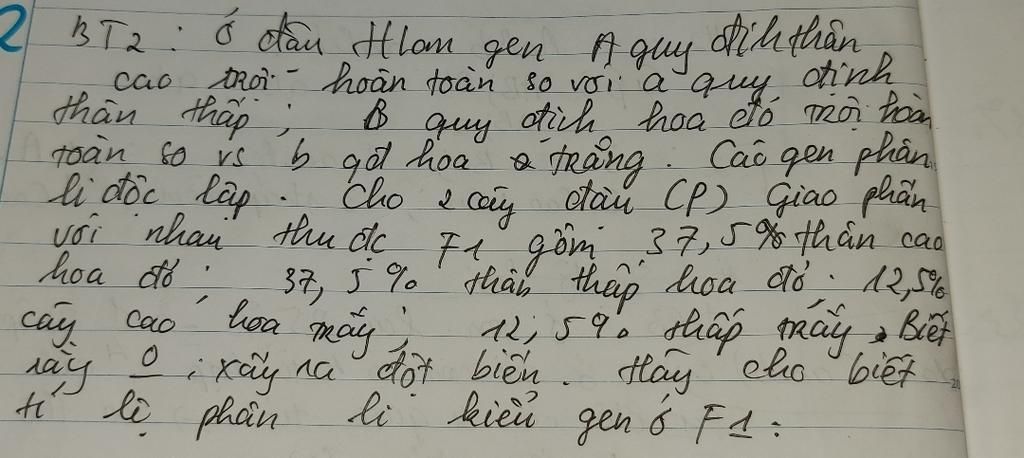 2 BT2 : Ở đậu Hlam gen A quy địh thân
cao trội hoàn toàn so với a quy định
thân thấp ; B quy địch hoa đỏ trội hoàn
toàn so vs b qđ hoa trắng. Các gen phân
li độc lập. Cho 2 cây đậu (P) Giao phấn
với nhau thu đc F1 gồm 37,5% thân cao
hoa đỏ : 37,5% thân thấp hoa đỏ : 12,5%
cây cao hoa mấy ; 12,5% thấp mấy. Biết
rày 0 xảy ra đột biến. Hãy cho biết
tỉ lệ phân li kiểu gen ở F1 :